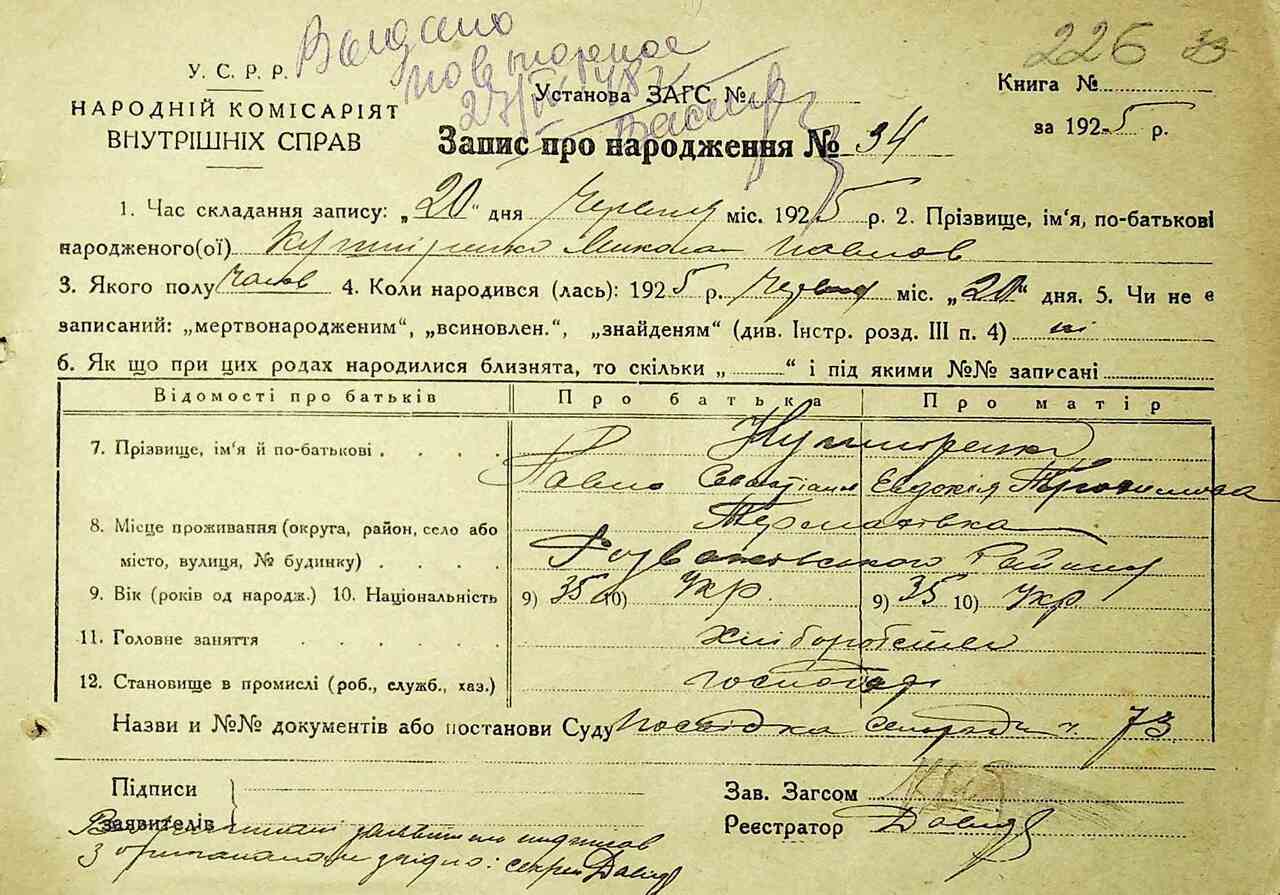 Видано
повторное
226 33
У. С. Р. Р.
НАРОДНІЙ КОМІСАРІЯТ
ВНУТРІШНІХ СПРАВ
27/
Установа ЗАГС №
Книга №
за 1925 р.
Запис про народження № 34
1. Час складання запису: „20" дня Червня міс. 1925 р. 2. Прізвище, ім'я, по-батькові
народженого(ої) Микола Павлов
3. Якого полу чолов 4. Коли народився (лась): 1925 р. Червня міс. „20" дня. 5. Чи не є
записаний: „мертвонародженим", „всиновлен.", „знайденям" (див. Інстр. розд. III п. 4) ні
6. Як що при цих родах народилися близнята, то скільки „ " і під якими №№ записані
Відомості про батьків Про батька Про матір
7. Прізвище, ім'я й по-батькові
Павло Євдокія Трохимова
8. Місце проживання (округа, район, село або
місто, вулиця, № будинку)
Термахівка
Розважівського Району
9. Вік (років од народж.) 10. Національність 9) 35 10) Укр. 9) 35 10) Укр.
11. Головне заняття хліборобство
12. Становище в промислі (роб., служб., хаз.) господар
Назви и №№ документів або постанови Суду посвідка сельради ч. 73
Підписи
заявителів
Зав. Загсом
Реєстратор Давид
З оригіналом згідно: секрет Давид